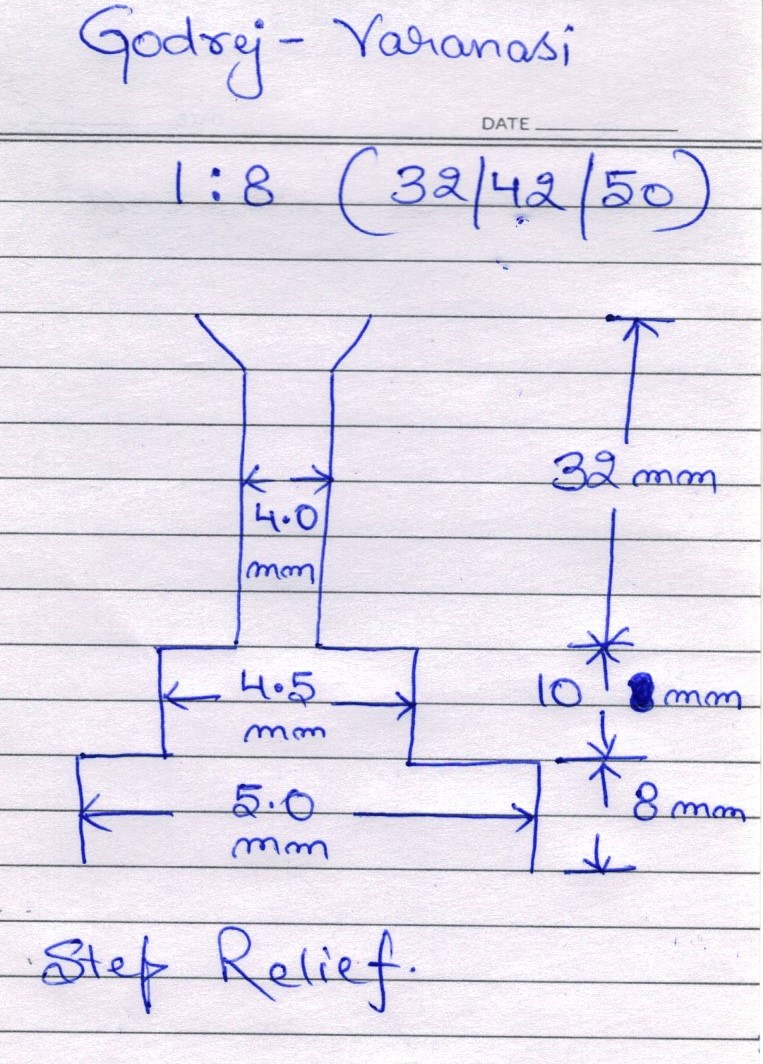 Godrej - Varanasi
DATE
1:8 (32/42/50)
32 mm
4.0
mm
4.5
mm
10 mm
5.0
mm
8 mm
Step Relief.